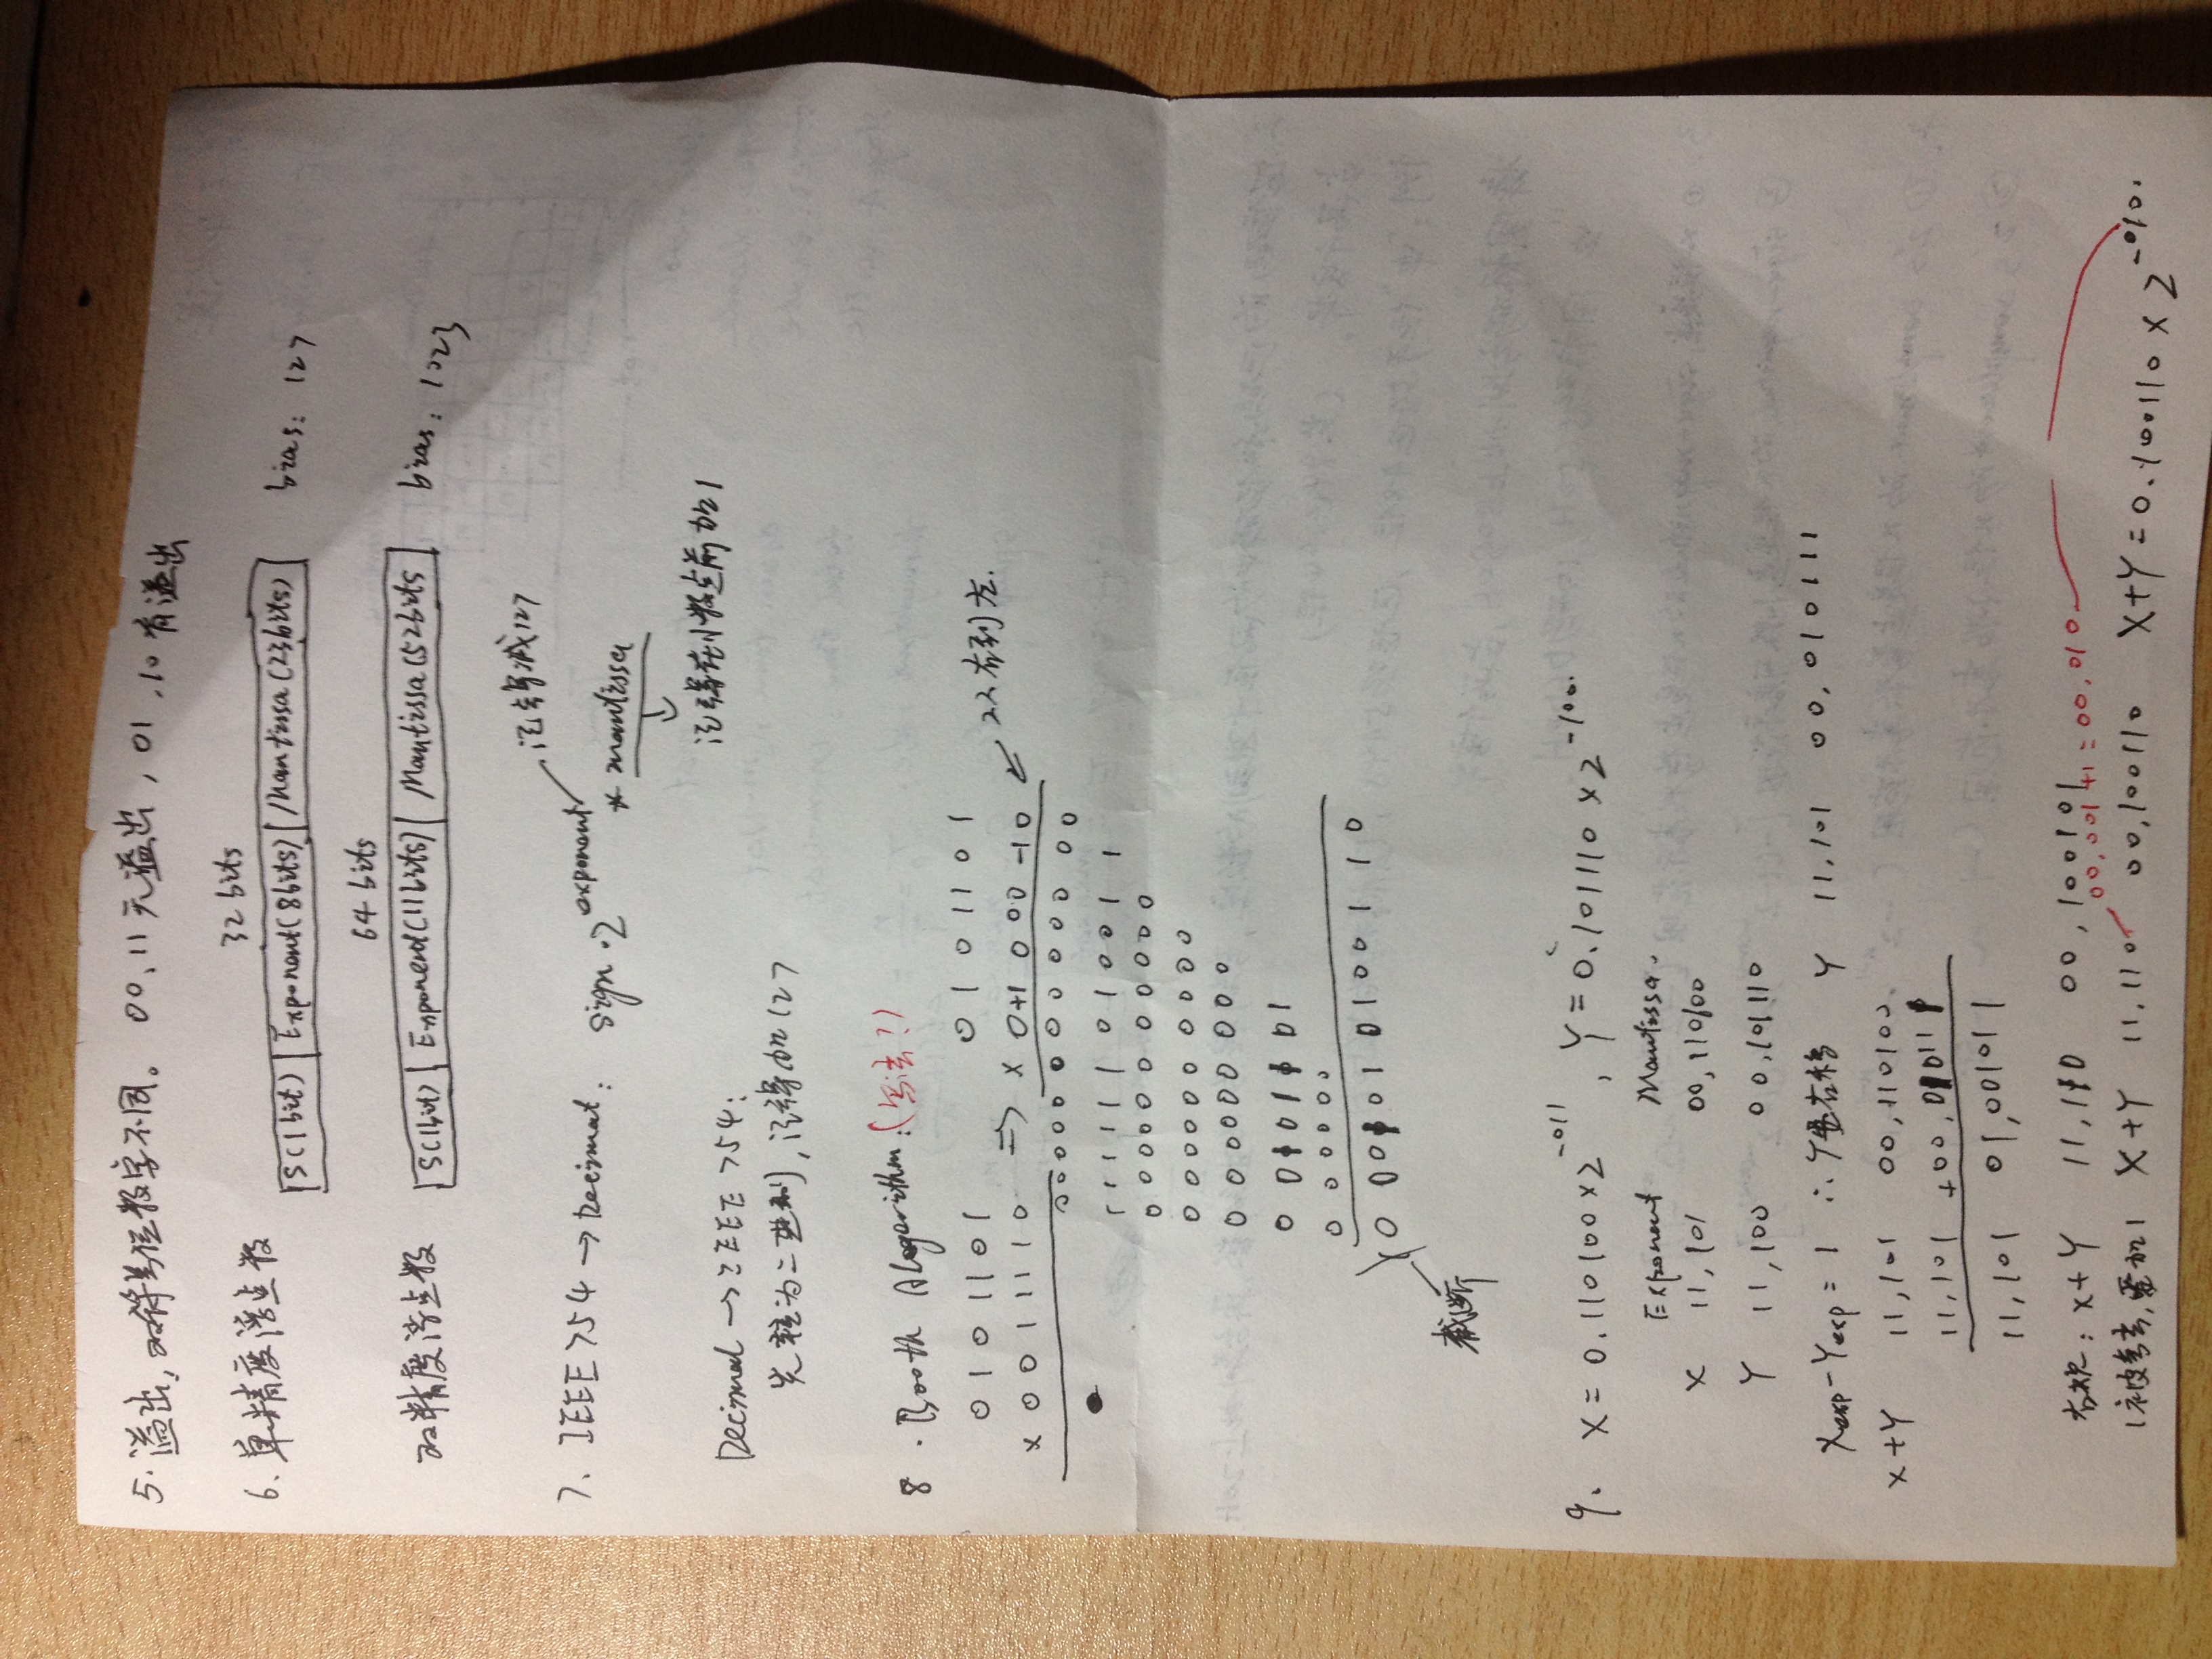 5. 溢出，双符号位数字不同。 00，11 无溢出，01，10 有溢出
6、单精度浮点数
32 bits
S(1bit) Exponent(8bits) Mantissa(23bits) bias: 127
64 bits
双精度浮点数 S(1bit) Exponent(11bits) Mantissa(52bits bias: 1023
记得减127
7. IEEE754 → Decimal: sign · 2^exponent * mantissa
记得在小数点前加1
Decimal → IEEE 754:
先转为二进制，记得加127
8. Booth Alogarithm:(写法?)
0101101 0101101
× 0011110 ⇒ × 0+1000-10 两两右到左.
0000000000000
111111010011
0000000000
000000000
00000000
00101101
000000
0001010100110
截断
9. X = 0.110100 × 2^-011 , Y = 0.101110 × 2^-100.
Exponent Mantissa.
X 11,101 00,110100
Y 11,100 00,101110
Xexp-Yexp = 1 ∴ Y要右移 Y 11,101 00,010111
X+Y 11,101 00,110100.
11,101 +00,010111
11,101 01,001011
右规: X+Y 11,110 00,100101
00,001+1=00,010
1被舍去,要加1 X+Y 11,110 00,100110 X+Y = 0.100110 × 2^-010.